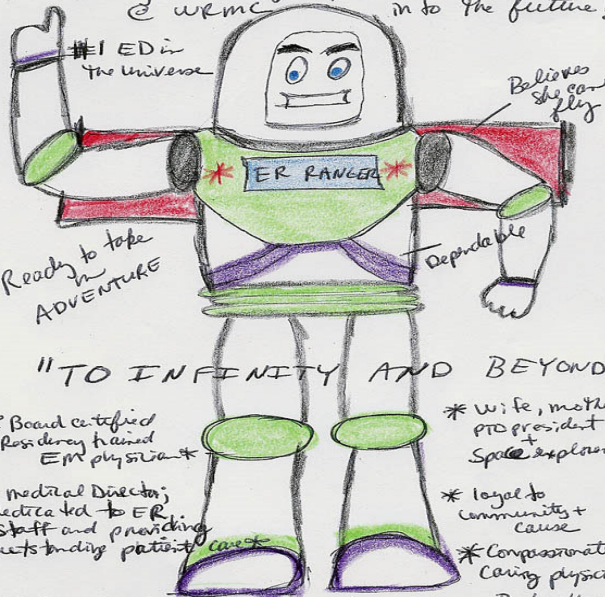 @ WRMC in to the future!
#1 ED in
the universe
Believes
she can
fly
ER RANGER
Ready to take
in
ADVENTURE
Dependable
"TO INFINITY AND BEYOND
* Board certified
Residency trained
EM physician*
medical Director;
dedicated to ER
staff and providing
outstanding patient care*
* Wife, moth
PTO president
+
Space explorer
* loyal to
community +
cause
* Compassionat
Caring physici